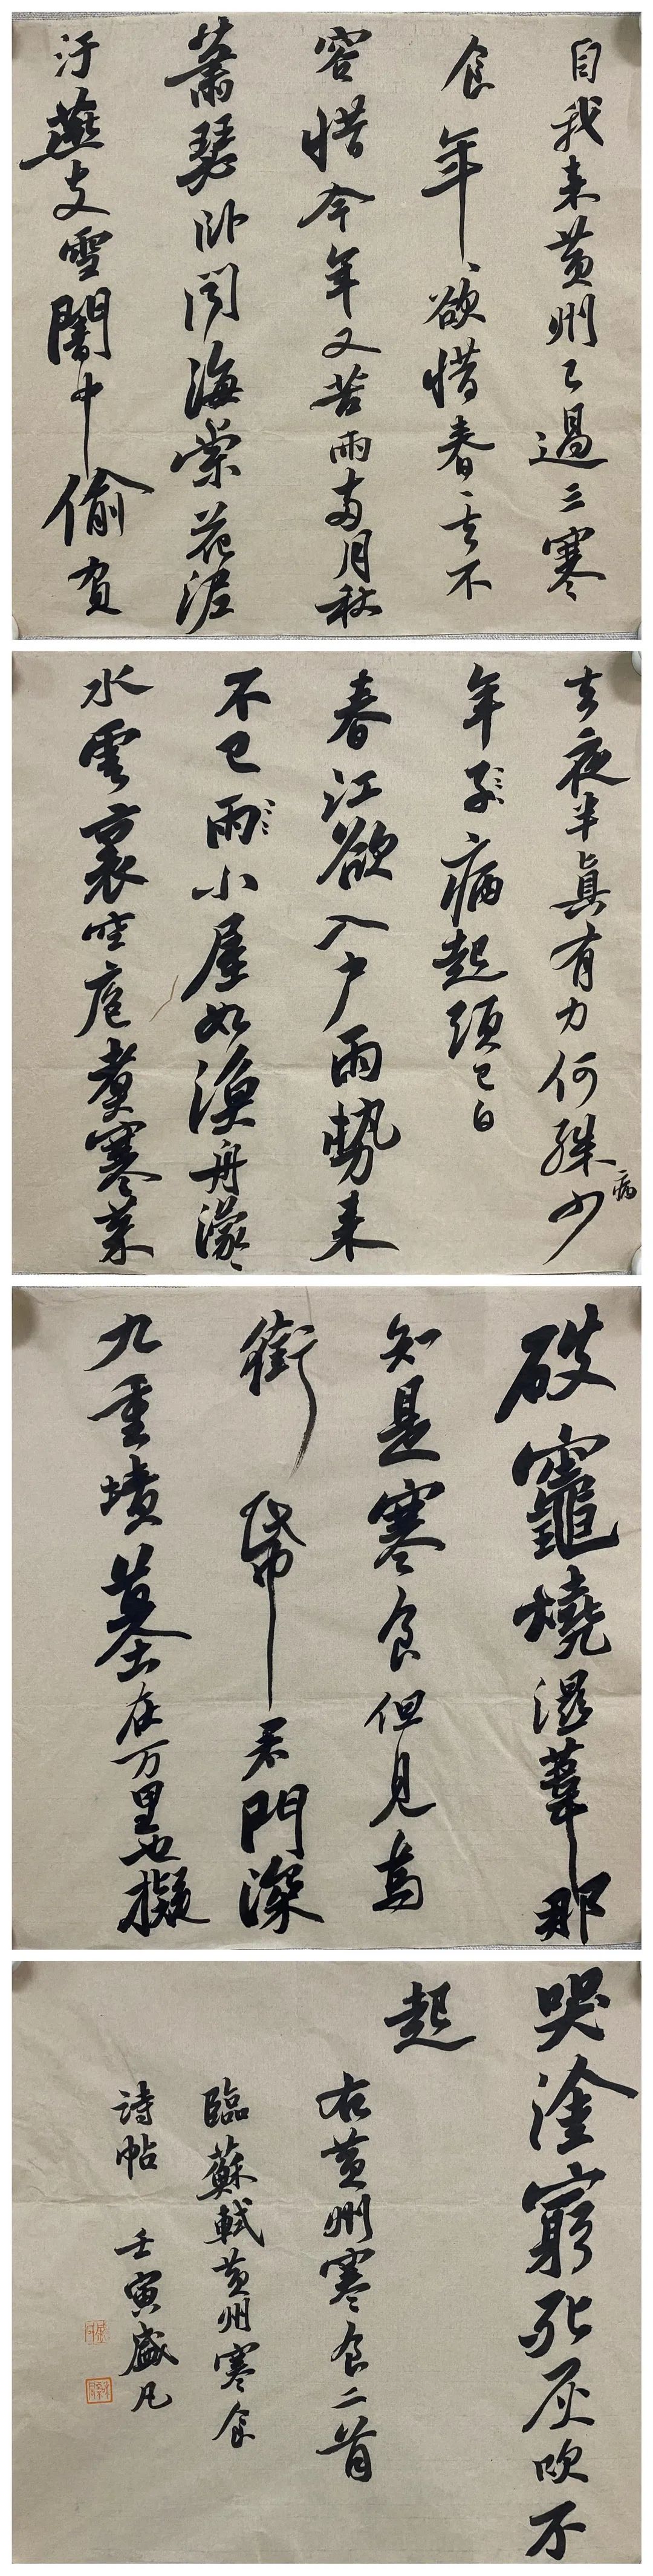 自我来黄州已過三寒
食年、欲惜春、去不
容惜今年又苦雨两月秋
蕭瑟卧聞海棠花泥
汙燕支雪闇中偷負
去夜半真有力何殊少
病
年子病起頭已白
春江欲入户雨勢来
不已雨小屋如漁舟濛〻
水雲裏空庖煮寒菜
破竈燒濕葦那
知是寒食但見烏
銜帋君門深
九重墳墓在万里也擬
哭塗窮死灰吹不
起
右黄州寒食二首
臨蘇軾黄州寒食
詩帖 壬寅盛凡